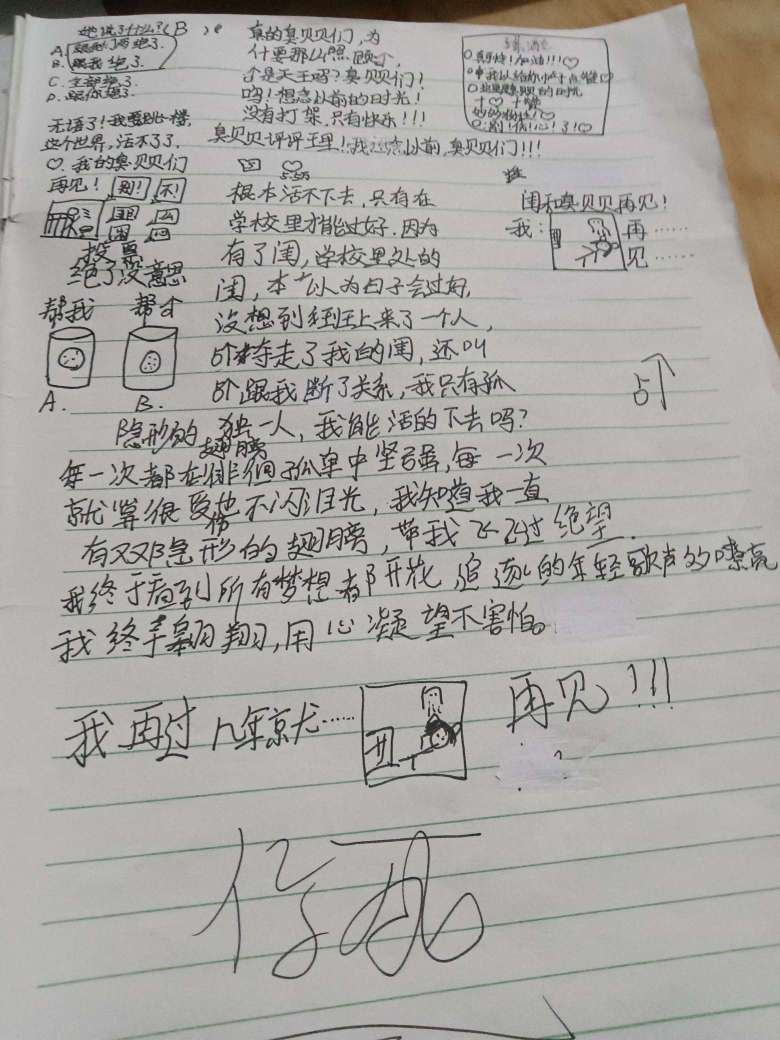 她说了什么?(B)
A.跟我们两绝了.
B.跟我绝了.
C.全部绝了.
D.跟你绝了.
无语了!我要跳楼,
这个世界,活不了了.
♡.我的臭贝贝们
再见!
别! 不!
投票
绝了没意思
帮我
A. B.
真的臭贝贝们,为
什要那么照顾个,
个是天王吗?臭贝贝们!
呜!想念以前的时光!
没有打架,只有快乐!!!
臭贝贝评评王里!我想念以前,臭贝贝们!!!
根本活不下去,只有在
学校里才能过好.因为
有了闺,学校里处的
闺,本以为日子会过好,
没想到班上来了一个人,
夺走了我的闺,还叫
跟我断了关系,我只有孤
独一人,我能活的下去吗?
闺和臭贝贝再见!
我:
再……
见……
隐形的
翅膀
每一次都在徘徊孤单中坚强,每一次
就算很受伤也不闪泪光,我知道我一直
有双隐形的翅膀,带我飞飞过绝望.
我终于看到所有梦想都开花追逐的年轻歌声多嘹亮
我终于翱翔,用心凝望不害怕。
我再过几年就……
再见!!!